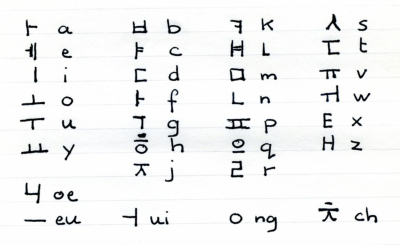 ㅏ a ㅂ b ㅋ k ㅅ s
ㅔ e ㅑ c ㅐ L ㄷ t
ㅣ i ㄷ d ㅁ m ㅠ v
ㅗ o ㅏ f ㄴ n ㅝ w
ㅜ u ㄱ g ㅍ p E x
ㅛ y ㅎ h 으 q H z
ㅈ j ㄹ r
ㅓ oe
ㅡ eu ㅓ ui ㅇ ng ㅊ ch